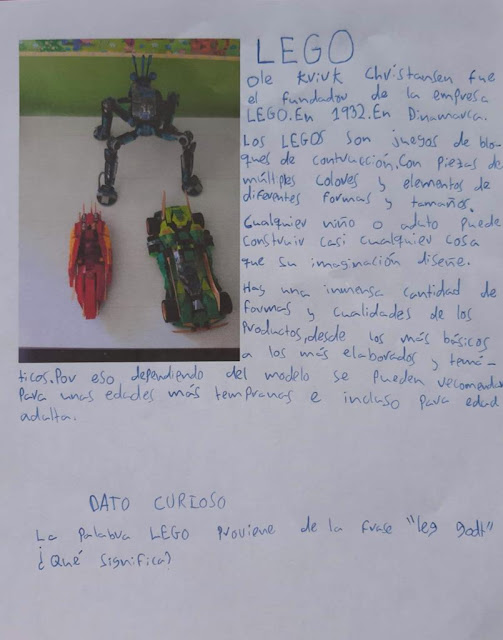 LEGO
Ole Kvivk Christansen fue
el fundador de la empresa
LEGO.En 1932.En Dinamarca.
Los LEGOS son juegos de blo-
ques de contruacción.Con piezas de
múltiples colores y elementos de
diferentes formas y tamaños.
Cualquier niño o aduto puede
construir casi cualquier cosa
que su imaginación diseñe.
Hay una inmensa cantidad de
formas y cualidades de los
Productos,desde los más básicos
a los más elaborados y temá-
ticos.Por eso dependiendo del modelo se pueden recomendar
para unas edades más tempranas e incluso para edad
adulta.
DATO CURIOSO
La palabra LEGO proviene de la frase "leg godt"
¿Qué significa?